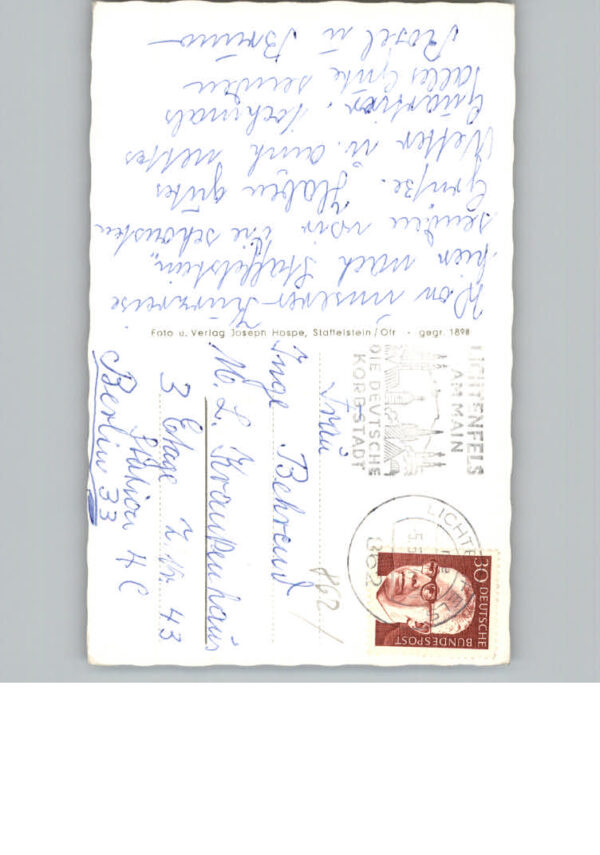 Von unserer Kurzreise
hier nach Staffelstein,
senden wir die schönsten
Grüße. Haben gutes
Wetter u. auch nettes
Quartier. Nochmals
alles Gute senden
Rosel u Bruno
Foto u. Verlag Joseph Hospe, Staffelstein/Ofr · gegr. 1898
LICHTENFELS
AM MAIN
DIE DEUTSCHE
KORBSTADT
LICHTE
862
30
DEUTSCHE
BUNDESPOST
Frau
Inge Behrend
M. L. Krankenhaus
3 Etage Z. Nr. 43
Station 4 C
Berlin 33
862/